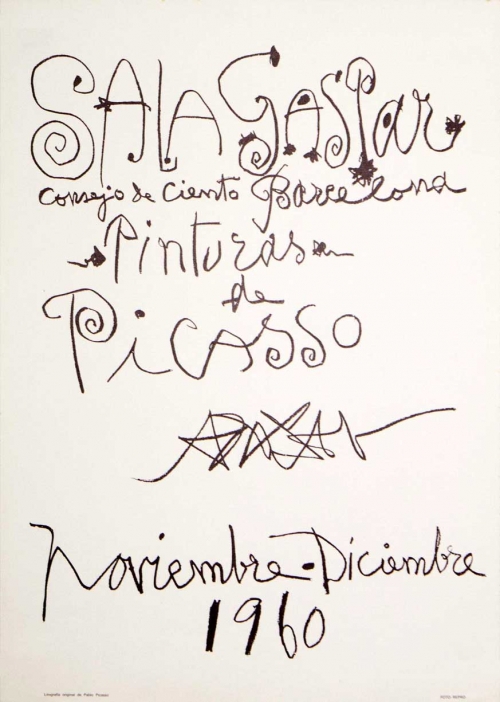 SALA GASPAR
Consejo de Ciento Barcelona
Pinturas
de
Picasso
Noviembre-Diciembre
1960
Litografía original de Pablo Picasso